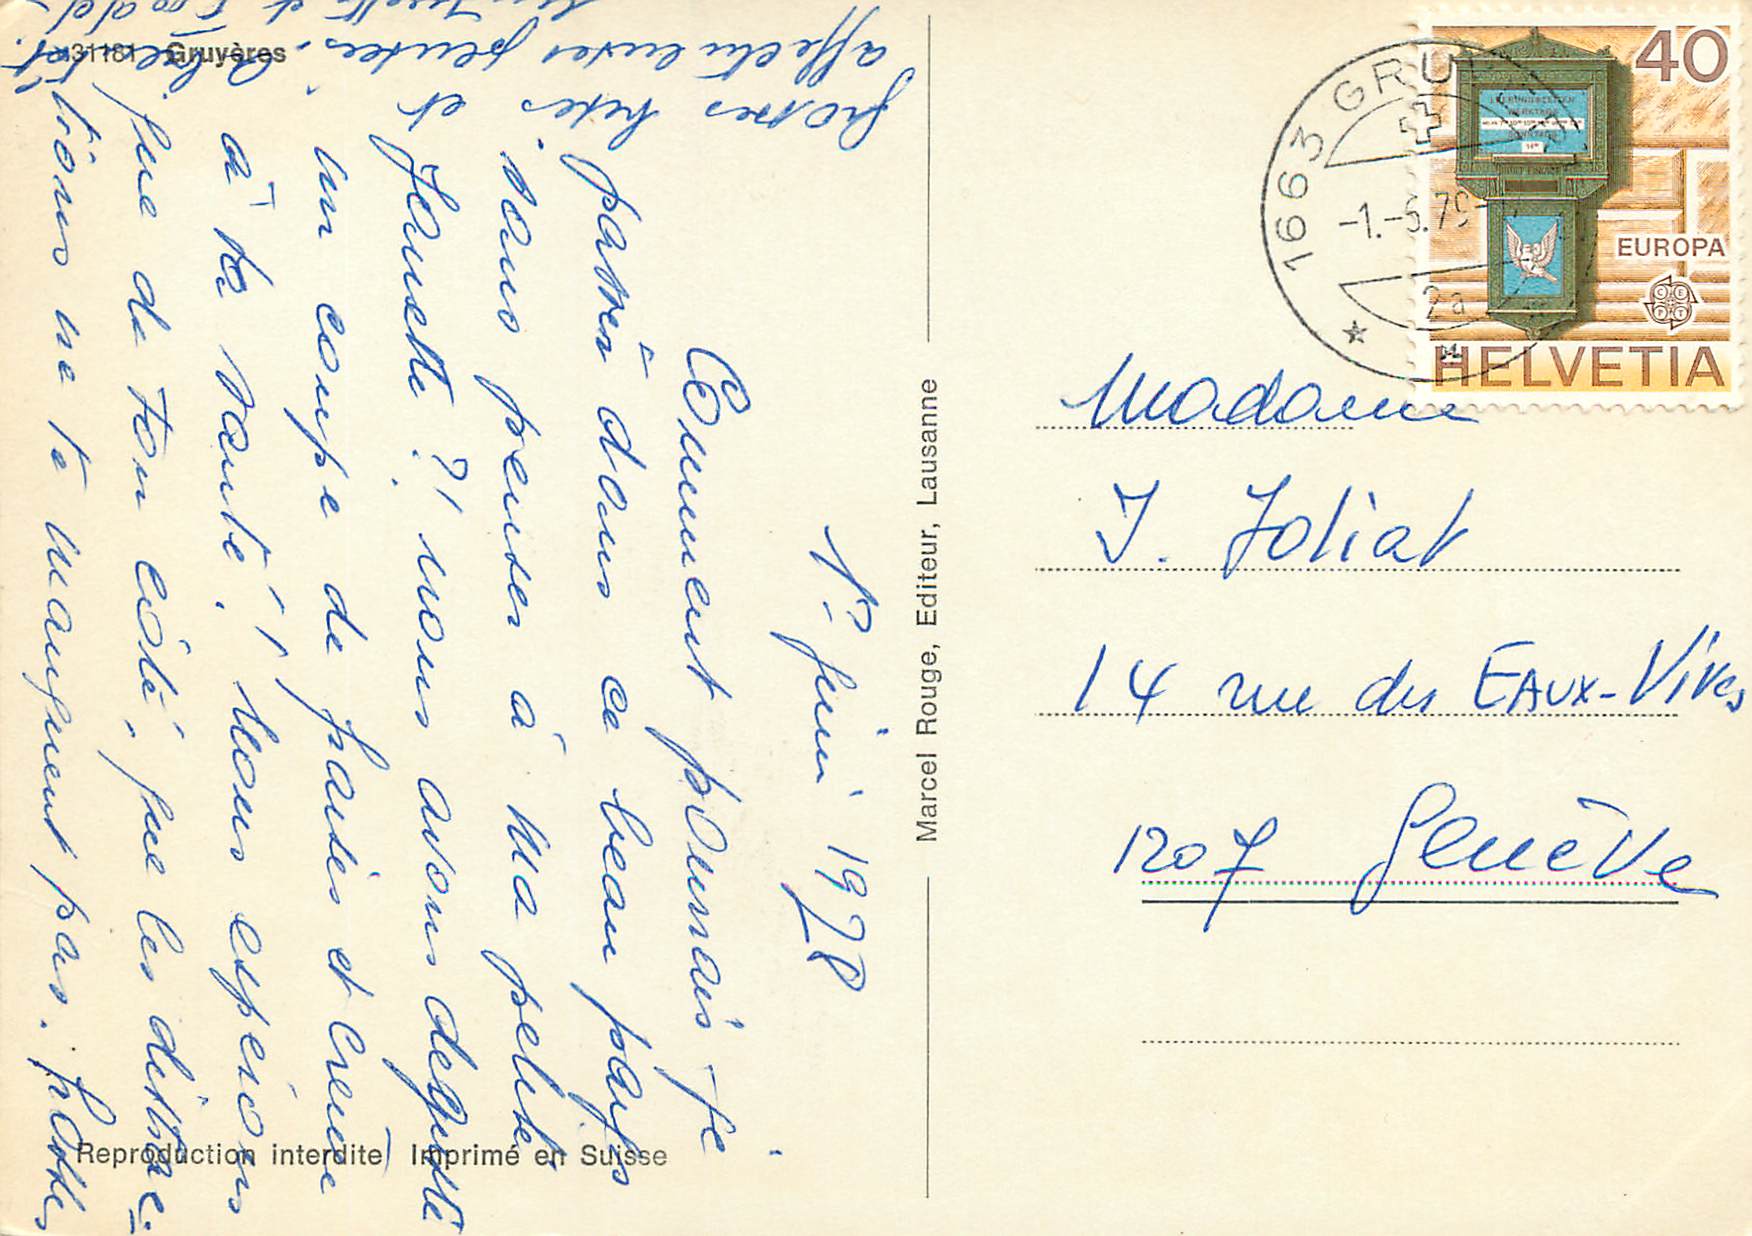 1er juin 1978
Comment pouvais-je
passer dans ce beau pays
sans penser à ma petite
Jeannette ?! nous avons dégusté
un coupe de fraises et Crème
à ta santé ! Nous espérons
que de ton côté, que les distrac-
tions ne te manquent pas.
Grosses bises et
affectueuses pensées.
31181 Gruyères
Reproduction interdite Imprimé en Suisse
Marcel Rouge, Editeur, Lausanne
1663 GRU
-1.-6.79-
2a
40
EUROPA
CEPT
HELVETIA
Madame
J. Joliat
14 rue des EAUX-Vives
1207 Genève